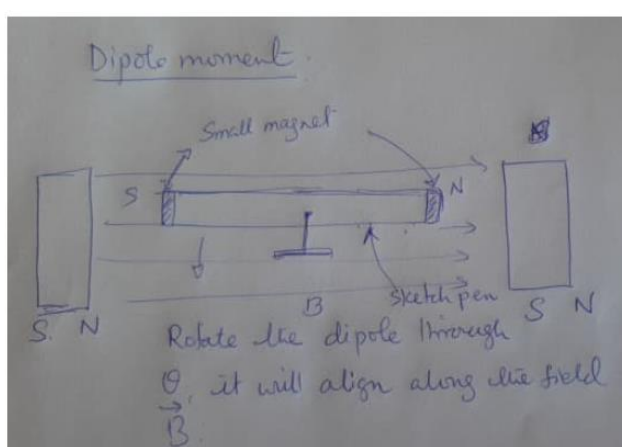 Dipole moment.
Small magnet
S N
B
sketch pen
S N S N
Rotate the dipole through
θ, it will align along the field
B.